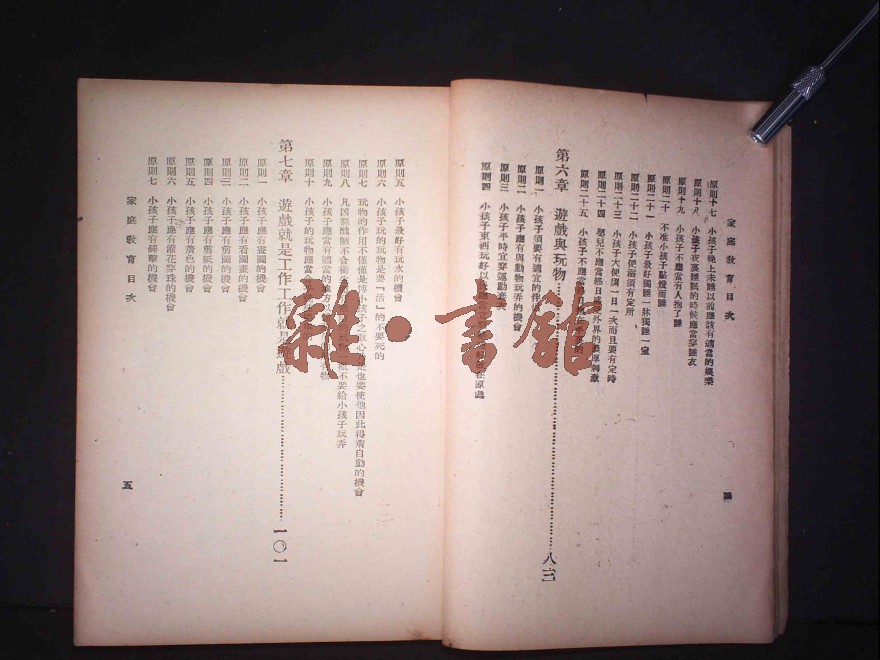 家庭敎育目次
原則十七 小孩子晚上未睡以前應該有適當的娛樂
原則十八 小孩子夜裏睡眠的時候應當穿睡衣
原則十九 小孩子不應當有人抱了睡
原則二十 不准小孩子點燈而睡
原則二十一 小孩子最好獨睡一牀獨睡一室
原則二十二 小孩子便溺須有定所
原則二十三 小孩子大便須一日一次而且要有定時
原則二十四 嬰兒不應當終日感受外界的 刺激
原則二十五 小孩子不應當 的
第六章 遊戲與玩物 八三
原則一 小孩子須要有適宜的伴
原則二 小孩子應有與動物玩弄的機會
原則三 小孩子平時宜穿運動套衣
原則四 小孩子東西玩好以 原處
四
原則五 小孩子最好有玩水的機會
原則六 小孩子玩的玩物是要「活」的不要死的
原則七 玩物的作用不僅僅是博小孩子之歡心 也要使他因此得着自動的機會
原則八 凡凶惡醜陋不合衞生 概不要給小孩子玩弄
原則九 小孩子應當有適當的地方 物
原則十 小孩子的玩物應當合
第七章 遊戲就是工作工作就是遊戲 一〇一
原則一 小孩子應有畫圖的機會
原則二 小孩子應有看圖畫的機會
原則三 小孩子應有剪圖的機會
原則四 小孩子應有剪紙的機會
原則五 小孩子應有着色的機會
原則六 小孩子應有灌花穿珠的機會
原則七 小孩子應有 的機會
家庭敎育目次
五
雜·書館